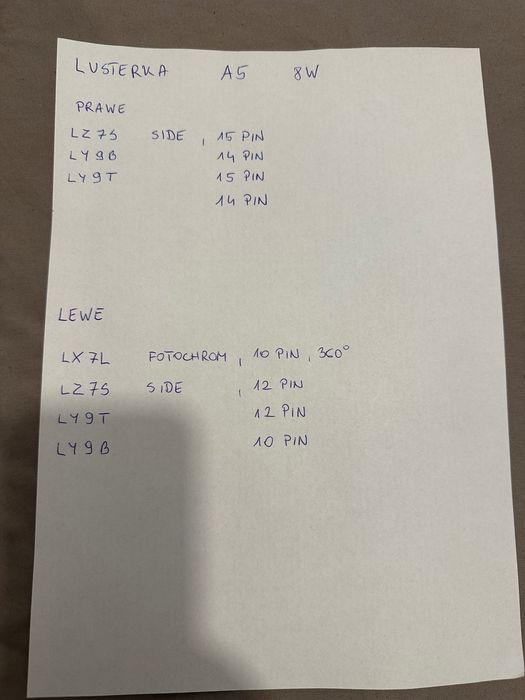 LUSTERKA A5 8W
PRAWE
LZ7S SIDE , 15 PIN
LY9B 14 PIN
LY9T 15 PIN
14 PIN
LEWE
LX7L FOTOCHROM , 10 PIN , 360°
LZ7S SIDE , 12 PIN
LY9T 12 PIN
LY9B 10 PIN